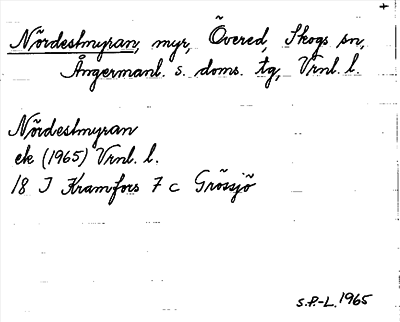 Nördestmyran, myr, Övered, Skogs sn,
Ångermanl. s. doms. tg, Vrnl. l.
Nördestmyran
ek (1965) Vrnl. l.
18 I Kramfors 7 c Grössjö
S.P.-L. 1965